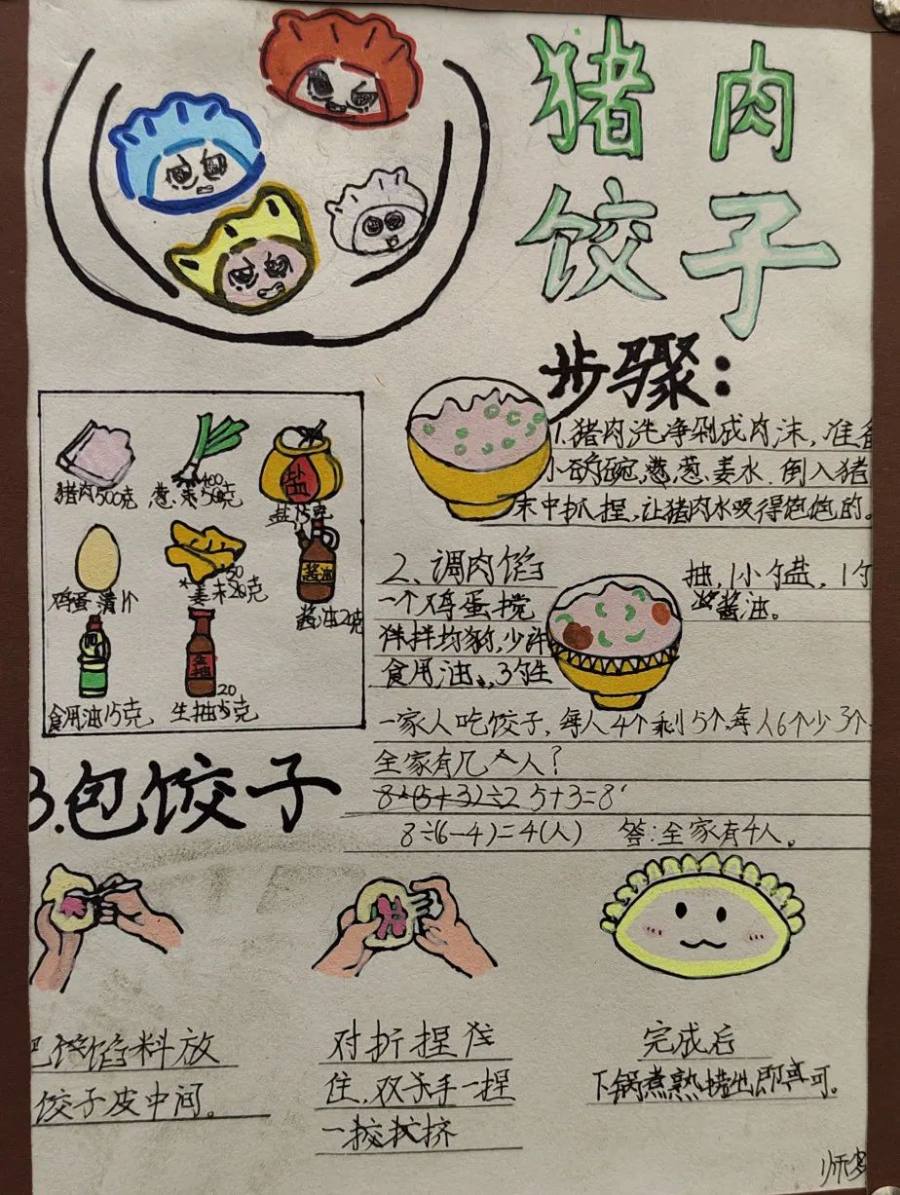 猪肉
饺子
步骤：
猪肉500克
葱400克
盐15克
鸡蛋清1个
姜末20克
酱油
酱油2克
食用油15克
生抽
20
生抽15克
盐
1.猪肉洗净剁成肉沫，准备
小碗，葱、姜水.倒入猪
末中抓捏，让猪肉水吸得饱饱的。
2、调肉馅
一个鸡蛋搅
拌均匀，少许
食用油、3勺生
抽，1小勺盐，1勺
酱油。
一家人吃饺子，每人4个剩5个，每人6个少3个
全家有几个人？
5+3=8
8÷(6-4)=4(人) 答：全家有4人。
3.包饺子
馅料放
饺子皮中间。
对折捏
住.双手一捏
一挤
完成后
下锅煮熟捞出即可。